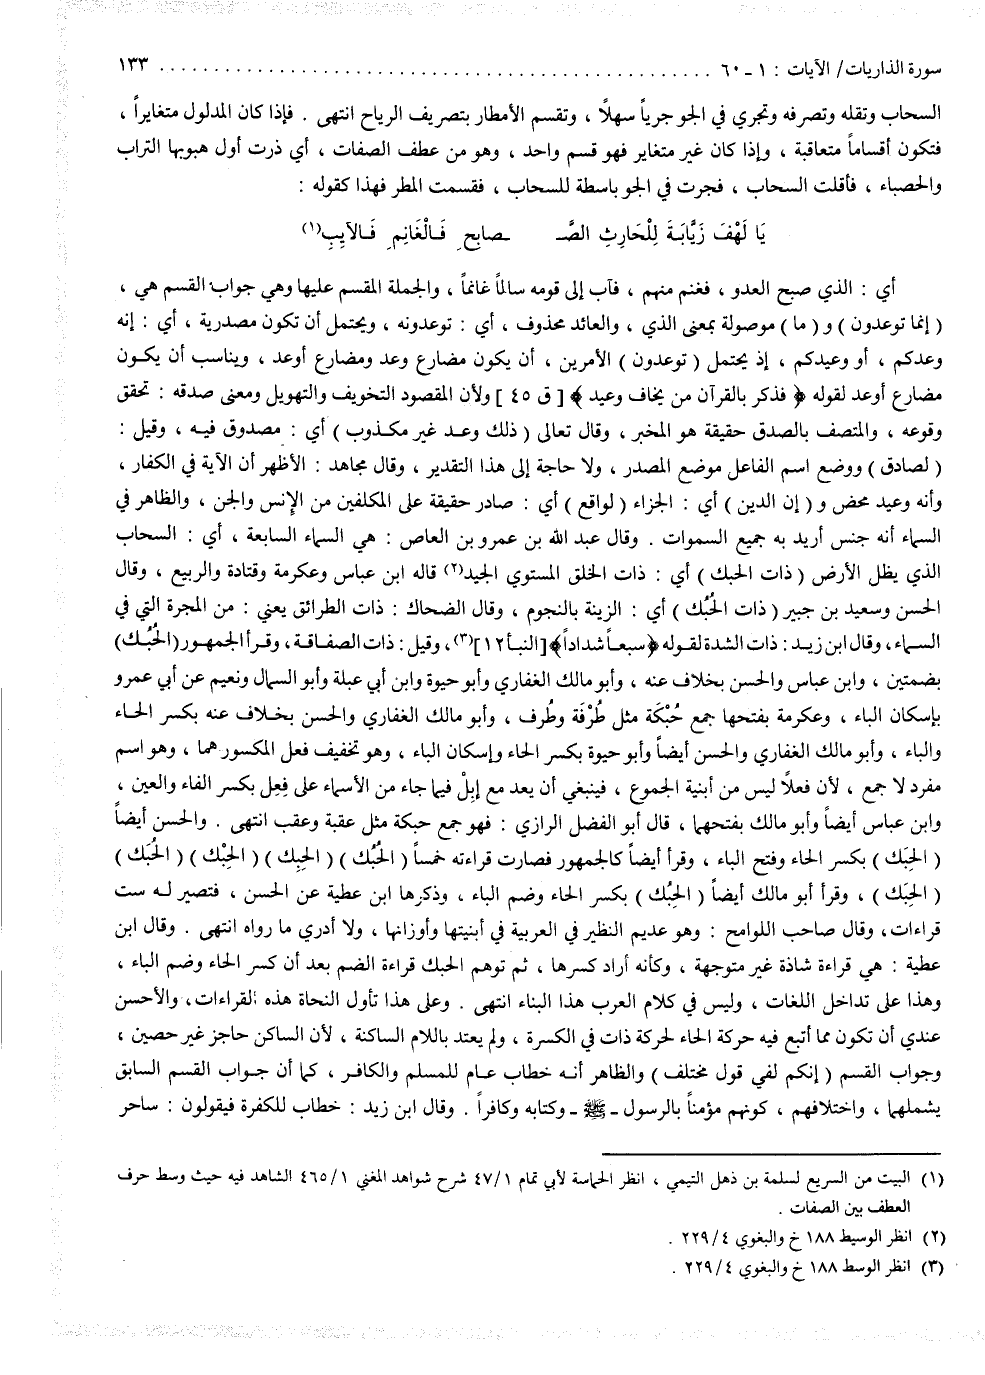 سورة الذاريات/ الآيات : ١ ـ ٦٠ ................................................ ١٣٣
السحاب وتقله وتصرفه وتجري في الجو جرياً سهلًا ، وتقسم الأمطار بتصريف الرياح انتهى . فإذا كان المدلول متغايراً ،
فتكون أقساماً متعاقبة ، وإذا كان غير متغاير فهو قسم واحد ، وهو من عطف الصفات ، أي ذرت أول هبوبها التراب
والحصباء ، فأقلت السحاب ، فجرت في الجو باسطة للسحاب ، فقسمت المطر فهذا كقوله :
يَا لَهْفَ زَيَّابَةَ لِلْحَارِثِ الصَّـ ـصابِحِ فَالْغَانِمِ فَالآيِبِ(١)
أي : الذي صبح العدو ، فغنم منهم ، فآب إلى قومه سالماً غانماً ، والجملة المقسم عليها وهي جواب القسم هي ،
( إنما توعدون ) و ( ما ) موصولة بمعنى الذي ، والعائد محذوف ، أي : توعدونه ، ويحتمل أن تكون مصدرية ، أي : إنه
وعدكم ، أو وعيدكم ، إذ يحتمل ( توعدون ) الأمرين ، أن يكون مضارع وعد ومضارع أوعد ، ويناسب أن يكون
مضارع أوعد لقوله ﴿ فذكر بالقرآن من يخاف وعيد ﴾ [ ق ٤٥ ] ولأن المقصود التخويف والتهويل ومعنى صدقه : تحقق
وقوعه ، والمتصف بالصدق حقيقة هو المخبر ، وقال تعالى ( ذلك وعد غير مكذوب ) أي : مصدوق فيه ، وقيل :
( لصادق ) ووضع اسم الفاعل موضع المصدر ، ولا حاجة إلى هذا التقدير ، وقال مجاهد : الأظهر أن الآية في الكفار ،
وأنه وعيد محض و ( إن الدين ) أي : الجزاء ( لواقع ) أي : صادر حقيقة على المكلفين من الإنس والجن ، والظاهر في
السماء أنه جنس أريد به جميع السموات . وقال عبد الله بن عمرو بن العاص : هي السماء السابعة ، أي : السحاب
الذي يظل الأرض ( ذات الحبك ) أي : ذات الخلق المستوي الجيد(٢) قاله ابن عباس وعكرمة وقتادة والربيع ، وقال
الحسن وسعيد بن جبير ( ذات الحُبُك ) أي : الزينة بالنجوم ، وقال الضحاك : ذات الطرائق يعني : من المجرة التي في
السماء ، وقال ابن زيد : ذات الشدة لقوله ﴿سبعاً شداداً﴾[النبأ١٢](٣)، وقيل : ذات الصفاقة، وقرأ الجمهور (الحُبُك)
بضمتين ، وابن عباس والحسن بخلاف عنه ، وأبو مالك الغفاري وأبو حيوة وابن أبي عبلة وأبو السمال ونعيم عن أبي عمرو
بإسكان الباء ، وعكرمة بفتحها جمع حُبْكَة مثل طُرْفَة وطُرف ، وأبو مالك الغفاري والحسن بخلاف عنه بكسر الحاء
والباء ، وأبو مالك الغفاري والحسن أيضاً وأبو حيوة بكسر الحاء وإسكان الباء ، وهو تخفيف فعل المكسورهما ، وهو اسم
مفرد لا جمع ، لأن فعلًا ليس من أبنية الجموع ، فينبغي أن يعد مع إبِلْ فيما جاء من الأسماء على فِعِل بكسر الفاء والعين ،
وابن عباس أيضاً وأبو مالك بفتحهما ، قال أبو الفضل الرازي : فهو جمع حبكة مثل عقبة وعقب انتهى . والحسن أيضاً
( الحِبَك ) بكسر الحاء وفتح الباء ، وقرأ أيضاً كالجمهور فصارت قراءته خمساً ( الحُبُك ) ( الحِبِك ) ( الحِبْك ) ( الحُبَك )
( الحِبَك ) ، وقرأ أبو مالك أيضاً ( الحِبُك ) بكسر الحاء وضم الباء ، وذكرها ابن عطية عن الحسن ، فتصير له ست
قراءات، وقال صاحب اللوامح : وهو عديم النظير في العربية في أبنيتها وأوزانها ، ولا أدري ما رواه انتهى . وقال ابن
عطية : هي قراءة شاذة غير متوجهة ، وكأنه أراد كسرها ، ثم توهم الحبك قراءة الضم بعد أن كسر الحاء وضم الباء ،
وهذا على تداخل اللغات ، وليس في كلام العرب هذا البناء انتهى . وعلى هذا تأول النحاة هذه القراءات، والأحسن
عندي أن تكون مما أتبع فيه حركة الحاء لحركة ذات في الكسرة ، ولم يعتد باللام الساكنة ، لأن الساكن حاجز غير حصين ،
وجواب القسم ( إنكم لفي قول مختلف ) والظاهر أنه خطاب عام للمسلم والكافر ، كما أن جواب القسم السابق
يشملهما ، واختلافهم ، كونهم مؤمناً بالرسول ـ ﷺ ـ وكتابه وكافراً . وقال ابن زيد : خطاب للكفرة فيقولون : ساحر
(١) البيت من السريع لسلمة بن ذهل التيمي ، انظر الحماسة لأبي تمام ٤٧/١ شرح شواهد المغني ٤٦٥/١ الشاهد فيه حيث وسط حرف
العطف بين الصفات .
(٢) انظر الوسيط ١٨٨ خ والبغوي ٢٢٩/٤ .
(٣) انظر الوسط ١٨٨ خ والبغوي ٢٢٩/٤ .